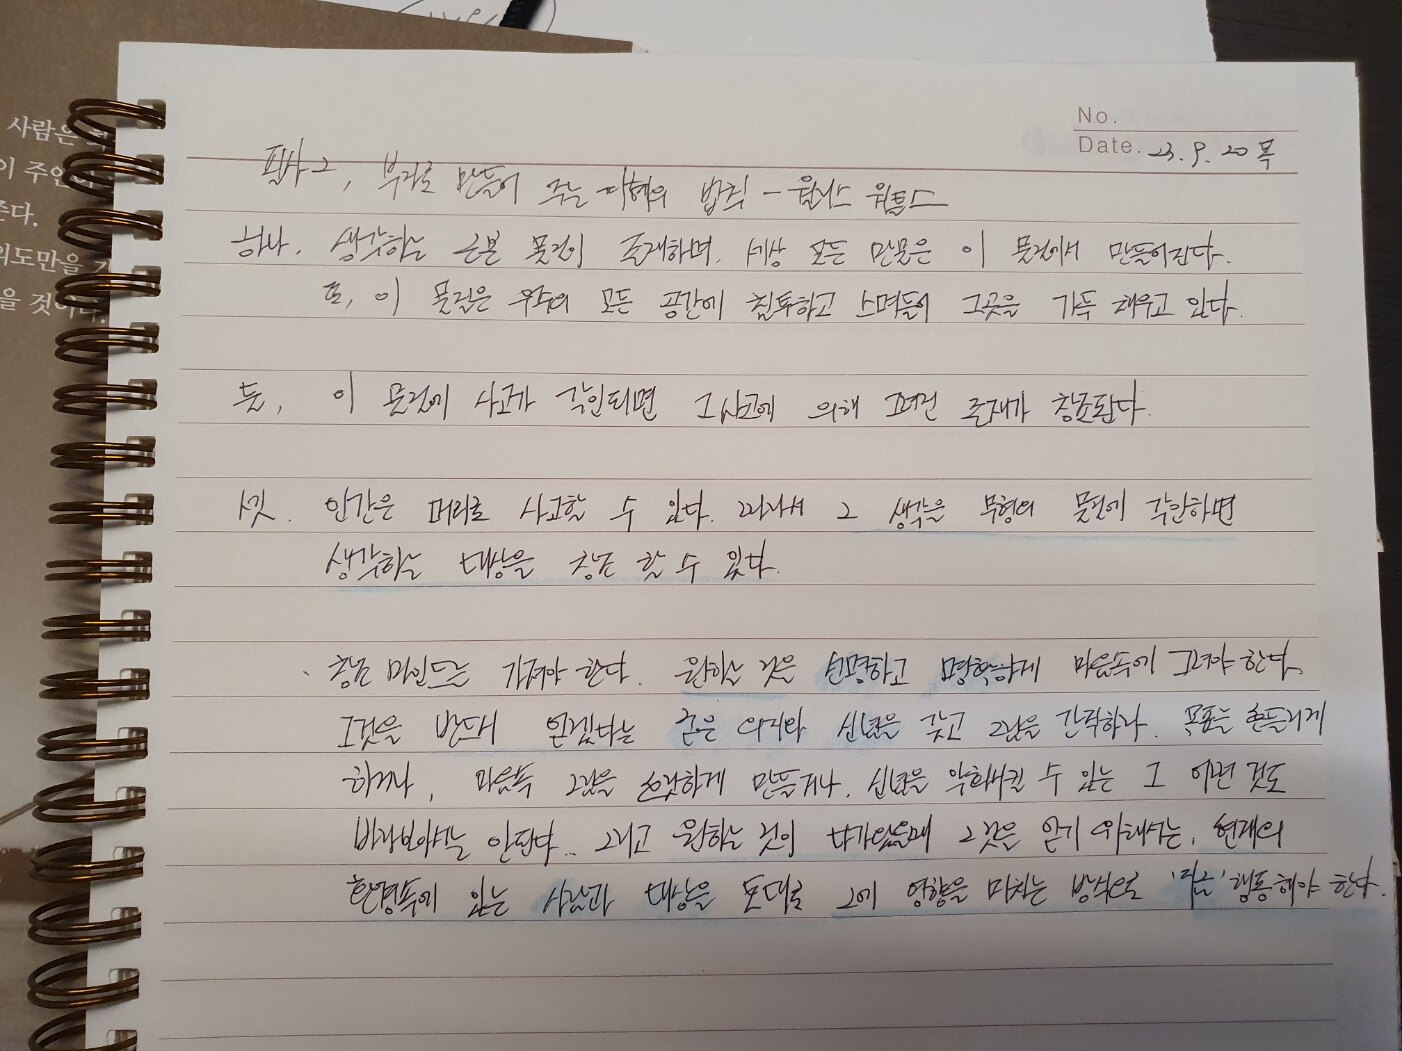 사람은
이 주인
준다.
의도만을
을 것이다.
No.
Date. 23. 9. 20 목
필사 2, 부자로 만들어 주는 지혜의 법칙 - 월러스 워틀스
하나. 생각하는 근본 물질이 존재하며, 세상 모든 만물은 이 물질에서 만들어진다.
또, 이 물질은 우주의 모든 공간에 침투하고 스며들어 그곳을 가득 채우고 있다.
둘, 이 물질에 사고가 각인되면 그 사고에 의해 그려진 존재가 창조된다.
셋. 인간은 머리로 사고할 수 있다. 따라서 그 생각을 무형의 물질에 각인하면
생각하는 대상을 창조 할 수 있다.
· 창조 마인드를 가져야 한다. 원하는 것을 선명하고 명확하게 마음속에 그려야 한다.
그것을 반드시 얻겠다는 굳은 의지와 신념을 갖고 그것을 간직하라. 목표를 흔들리게
하거나, 마음속 그것을 흐릿하게 만들거나, 신념을 약화시킬 수 있는 그 어떤 것도
바라보아서는 안된다.. 그리고 원하는 것이 다가왔을때 그것을 얻기 위해서는, 현재의
환경속에 있는 사람과 대상을 토대로 그에 영향을 미치는 방식으로 '지금' 행동해야 한다.